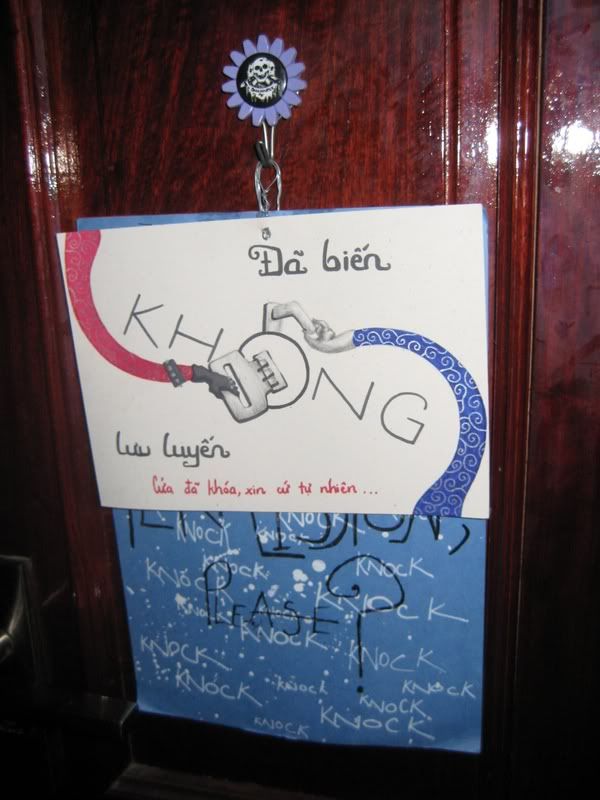 Đã biến
KHÔNG
lưu luyến
Cửa đã khóa, xin cứ tự nhiên...
KNOCK
KNOCK KNOCK
KNOCK KNOCK KNOCK
PLEASE?
KNOCK KNOCK
KNOCK
KNOCK KNOCK
KNOCK KNOCK KNOCK
KNOCK
KNOCK KNOCK